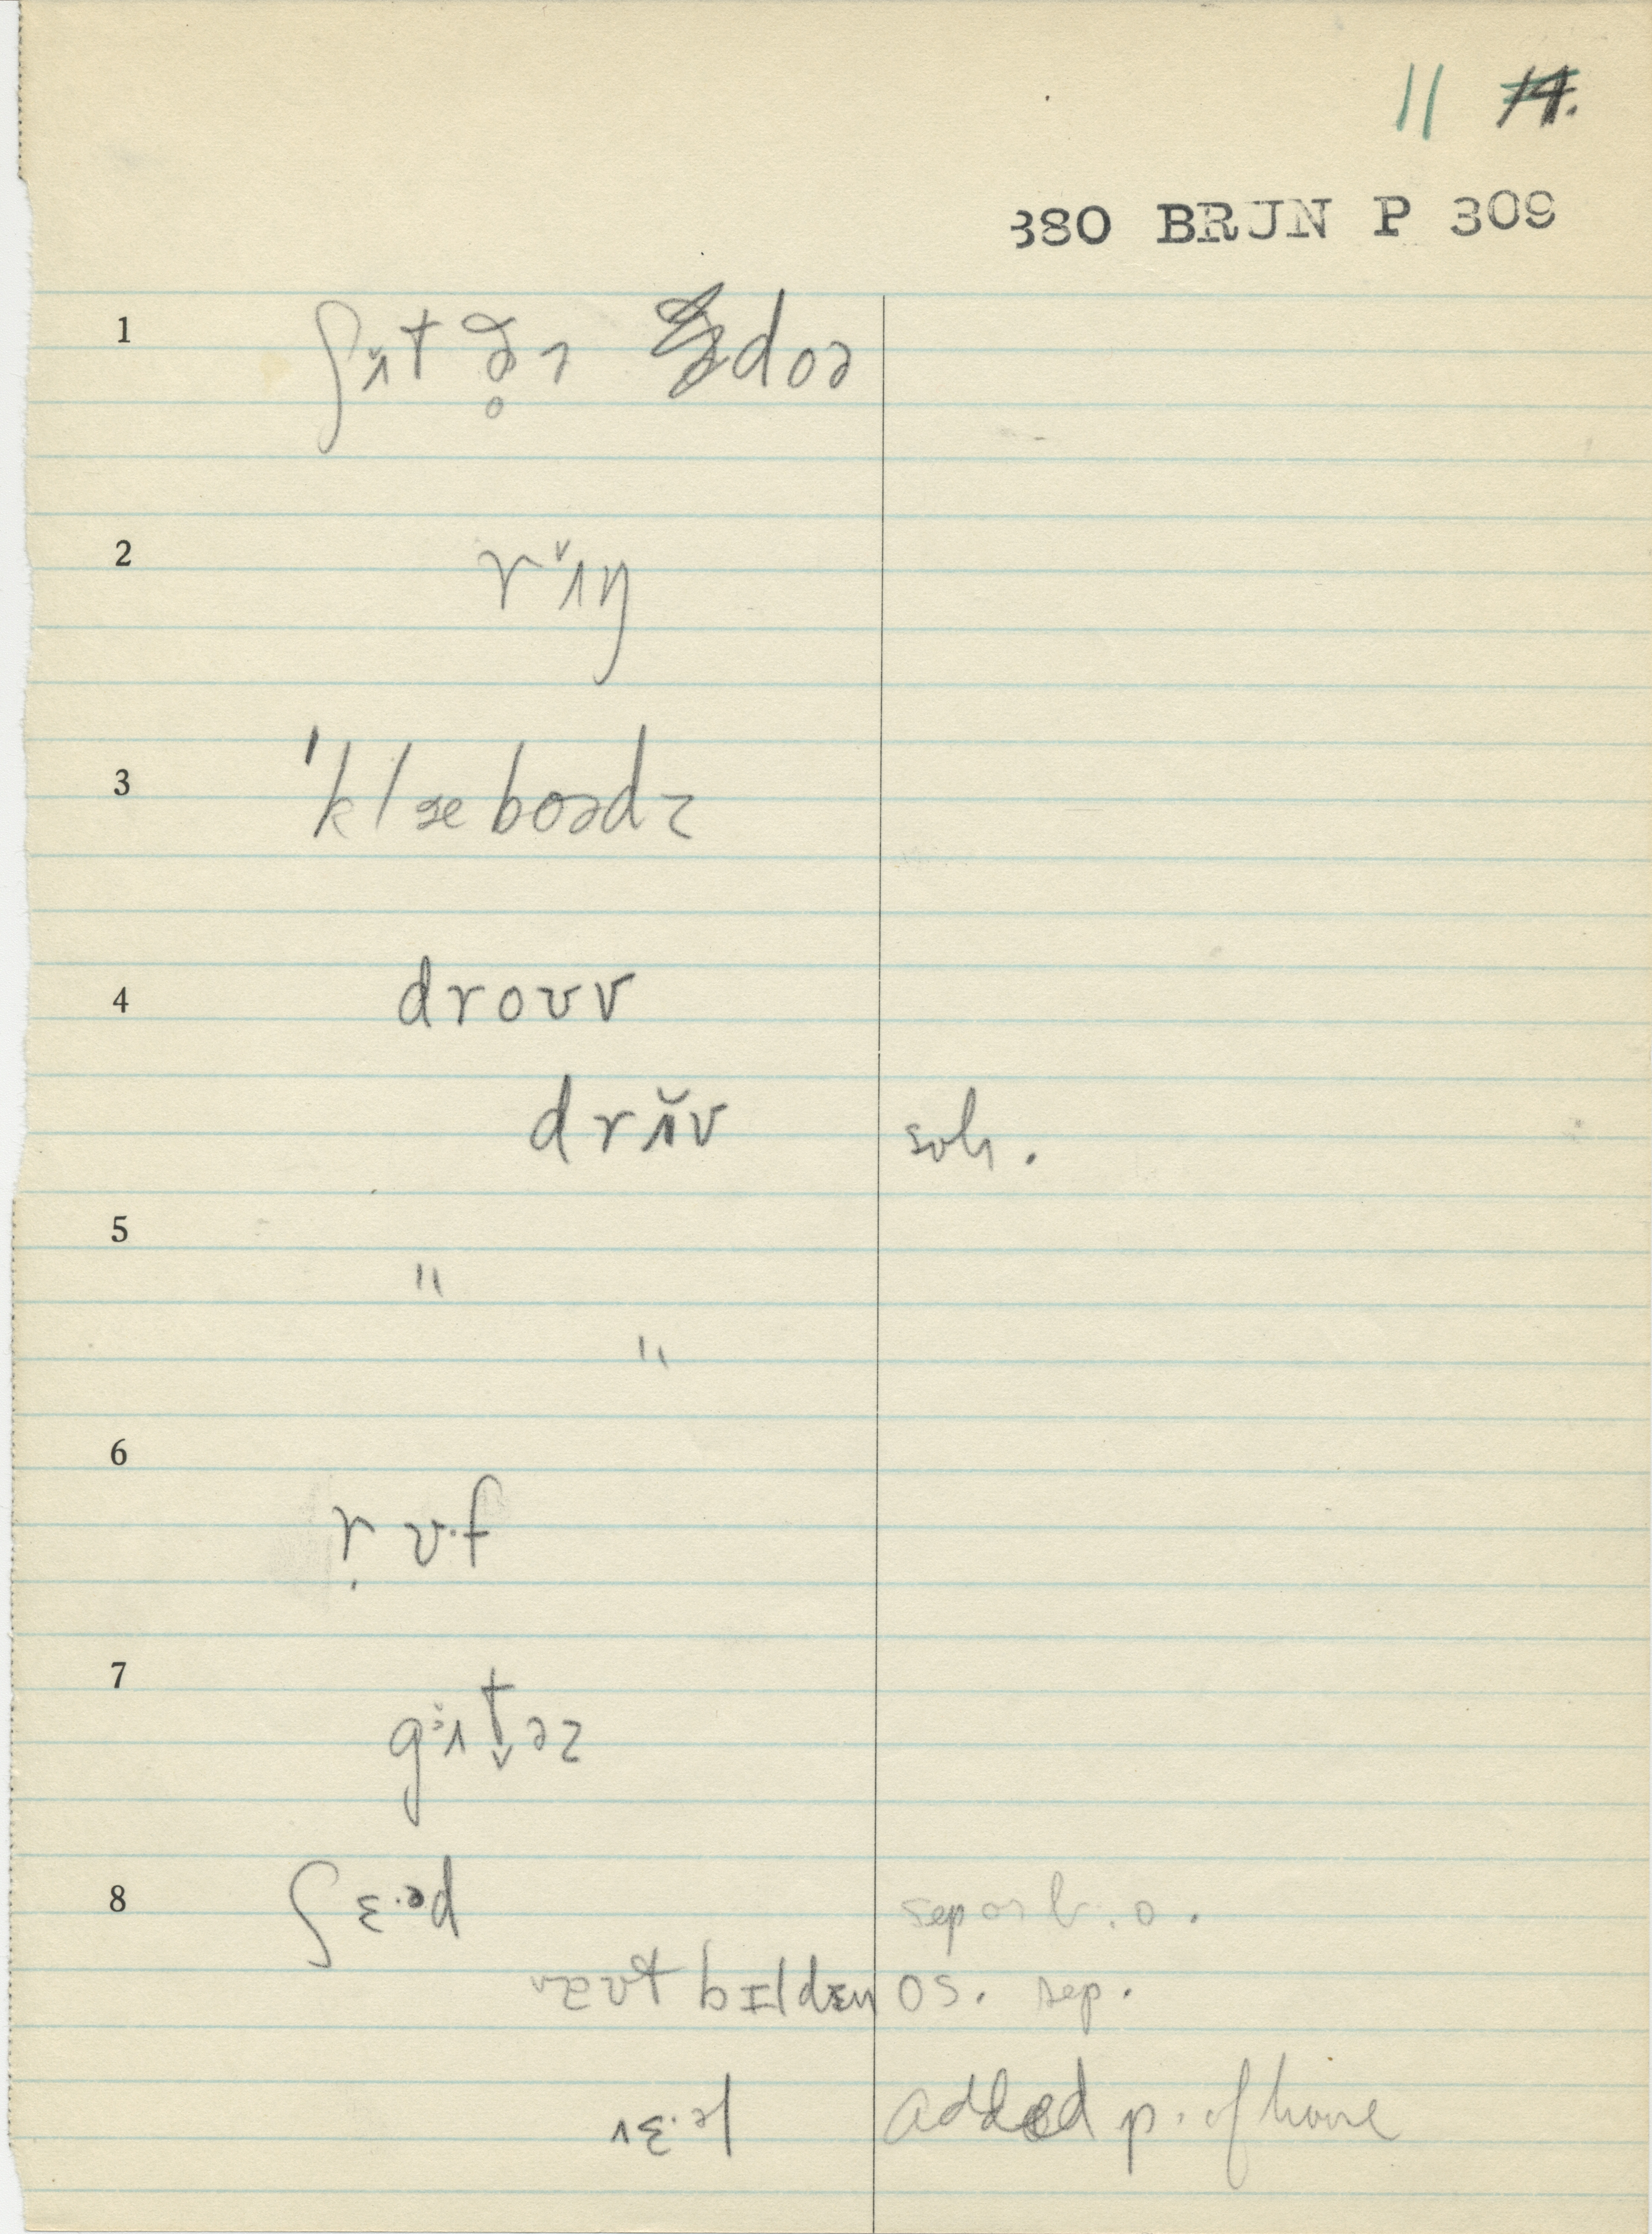 11 14.
380 BRJN P 309
1 ʃʌ̌t ð̥ɪ doə
2 rʌ̌ŋ
3 ˈklæboədz
4 droʊv
drʌ̌v sub.
5 "
"
6 ṛʊ·f
7 gʌ̌t̬əz
8 ʃɛ·əd sep or b. o.
aʊt bɪldɛn os. sep.
ɛ·əl added p. of house